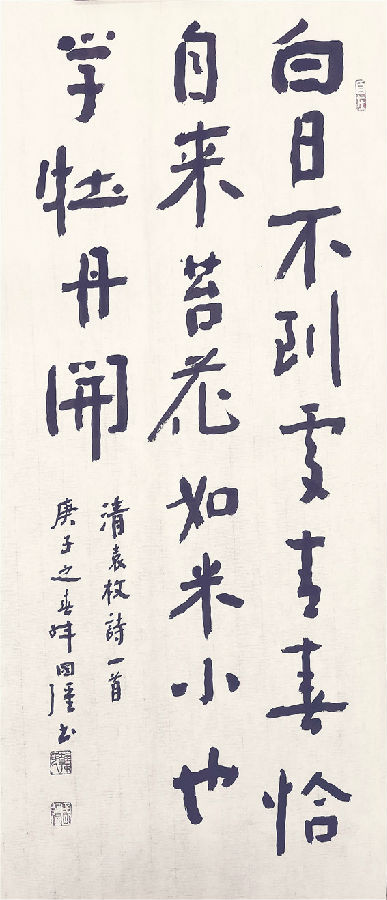 白日不到處青春恰
自来苔花如米小也
学牡丹開
清袁枚詩一首
庚子之春书